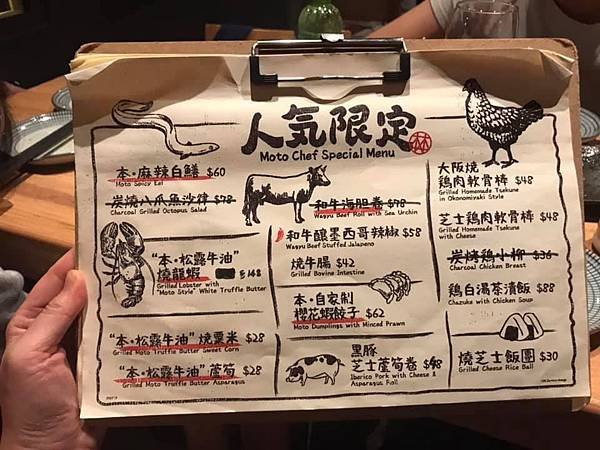 人気限定
Moto Chef Special Menu
本・麻辣白鱔 $60
Moto Spicy Eel
炭燒八爪魚沙律 $78
Charcoal Grilled Octopus Salad
"本・松露牛油"
燒龍蝦 $148
Grilled Lobster with
"Moto Style" White Truffle Butter
"本・松露牛油" 燒粟米 $28
Grilled Moto Truffle Butter Sweet Corn
"本・松露牛油" 蘆筍 $28
Grilled Moto Truffle Butter Asparagus
和牛海胆卷 $78
Wagyu Beef Roll with Sea Urchin
和牛釀墨西哥辣椒 $58
Wagyu Beef Stuffed Jalapeno
燒牛腸 $42
Grilled Bovine Intestine
本・自家制
櫻花蝦餃子 $62
Moto Dumplings with Minced Prawn
黑豚
芝士蘆筍卷 $48
Iberico Pork with Cheese &
Asparagus Roll
大阪燒
鷄肉軟骨棒 $48
Grilled Homemade Tsekune
in Okonomiyaki Style
芝士鷄肉軟骨棒 $48
Grilled Homemade Tsekune
with Cheese
炭烤鷄小柳 $36
Charcoal Chicken Breast
鷄白湯茶漬飯 $88
Chazuke with Chicken Soup
燒芝士飯團 $30
Grilled Cheese Rice Ball